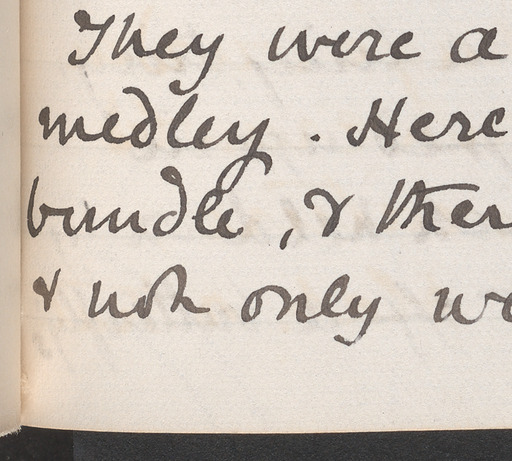 They were a
medley. Here
bundle, & ther
& not only we